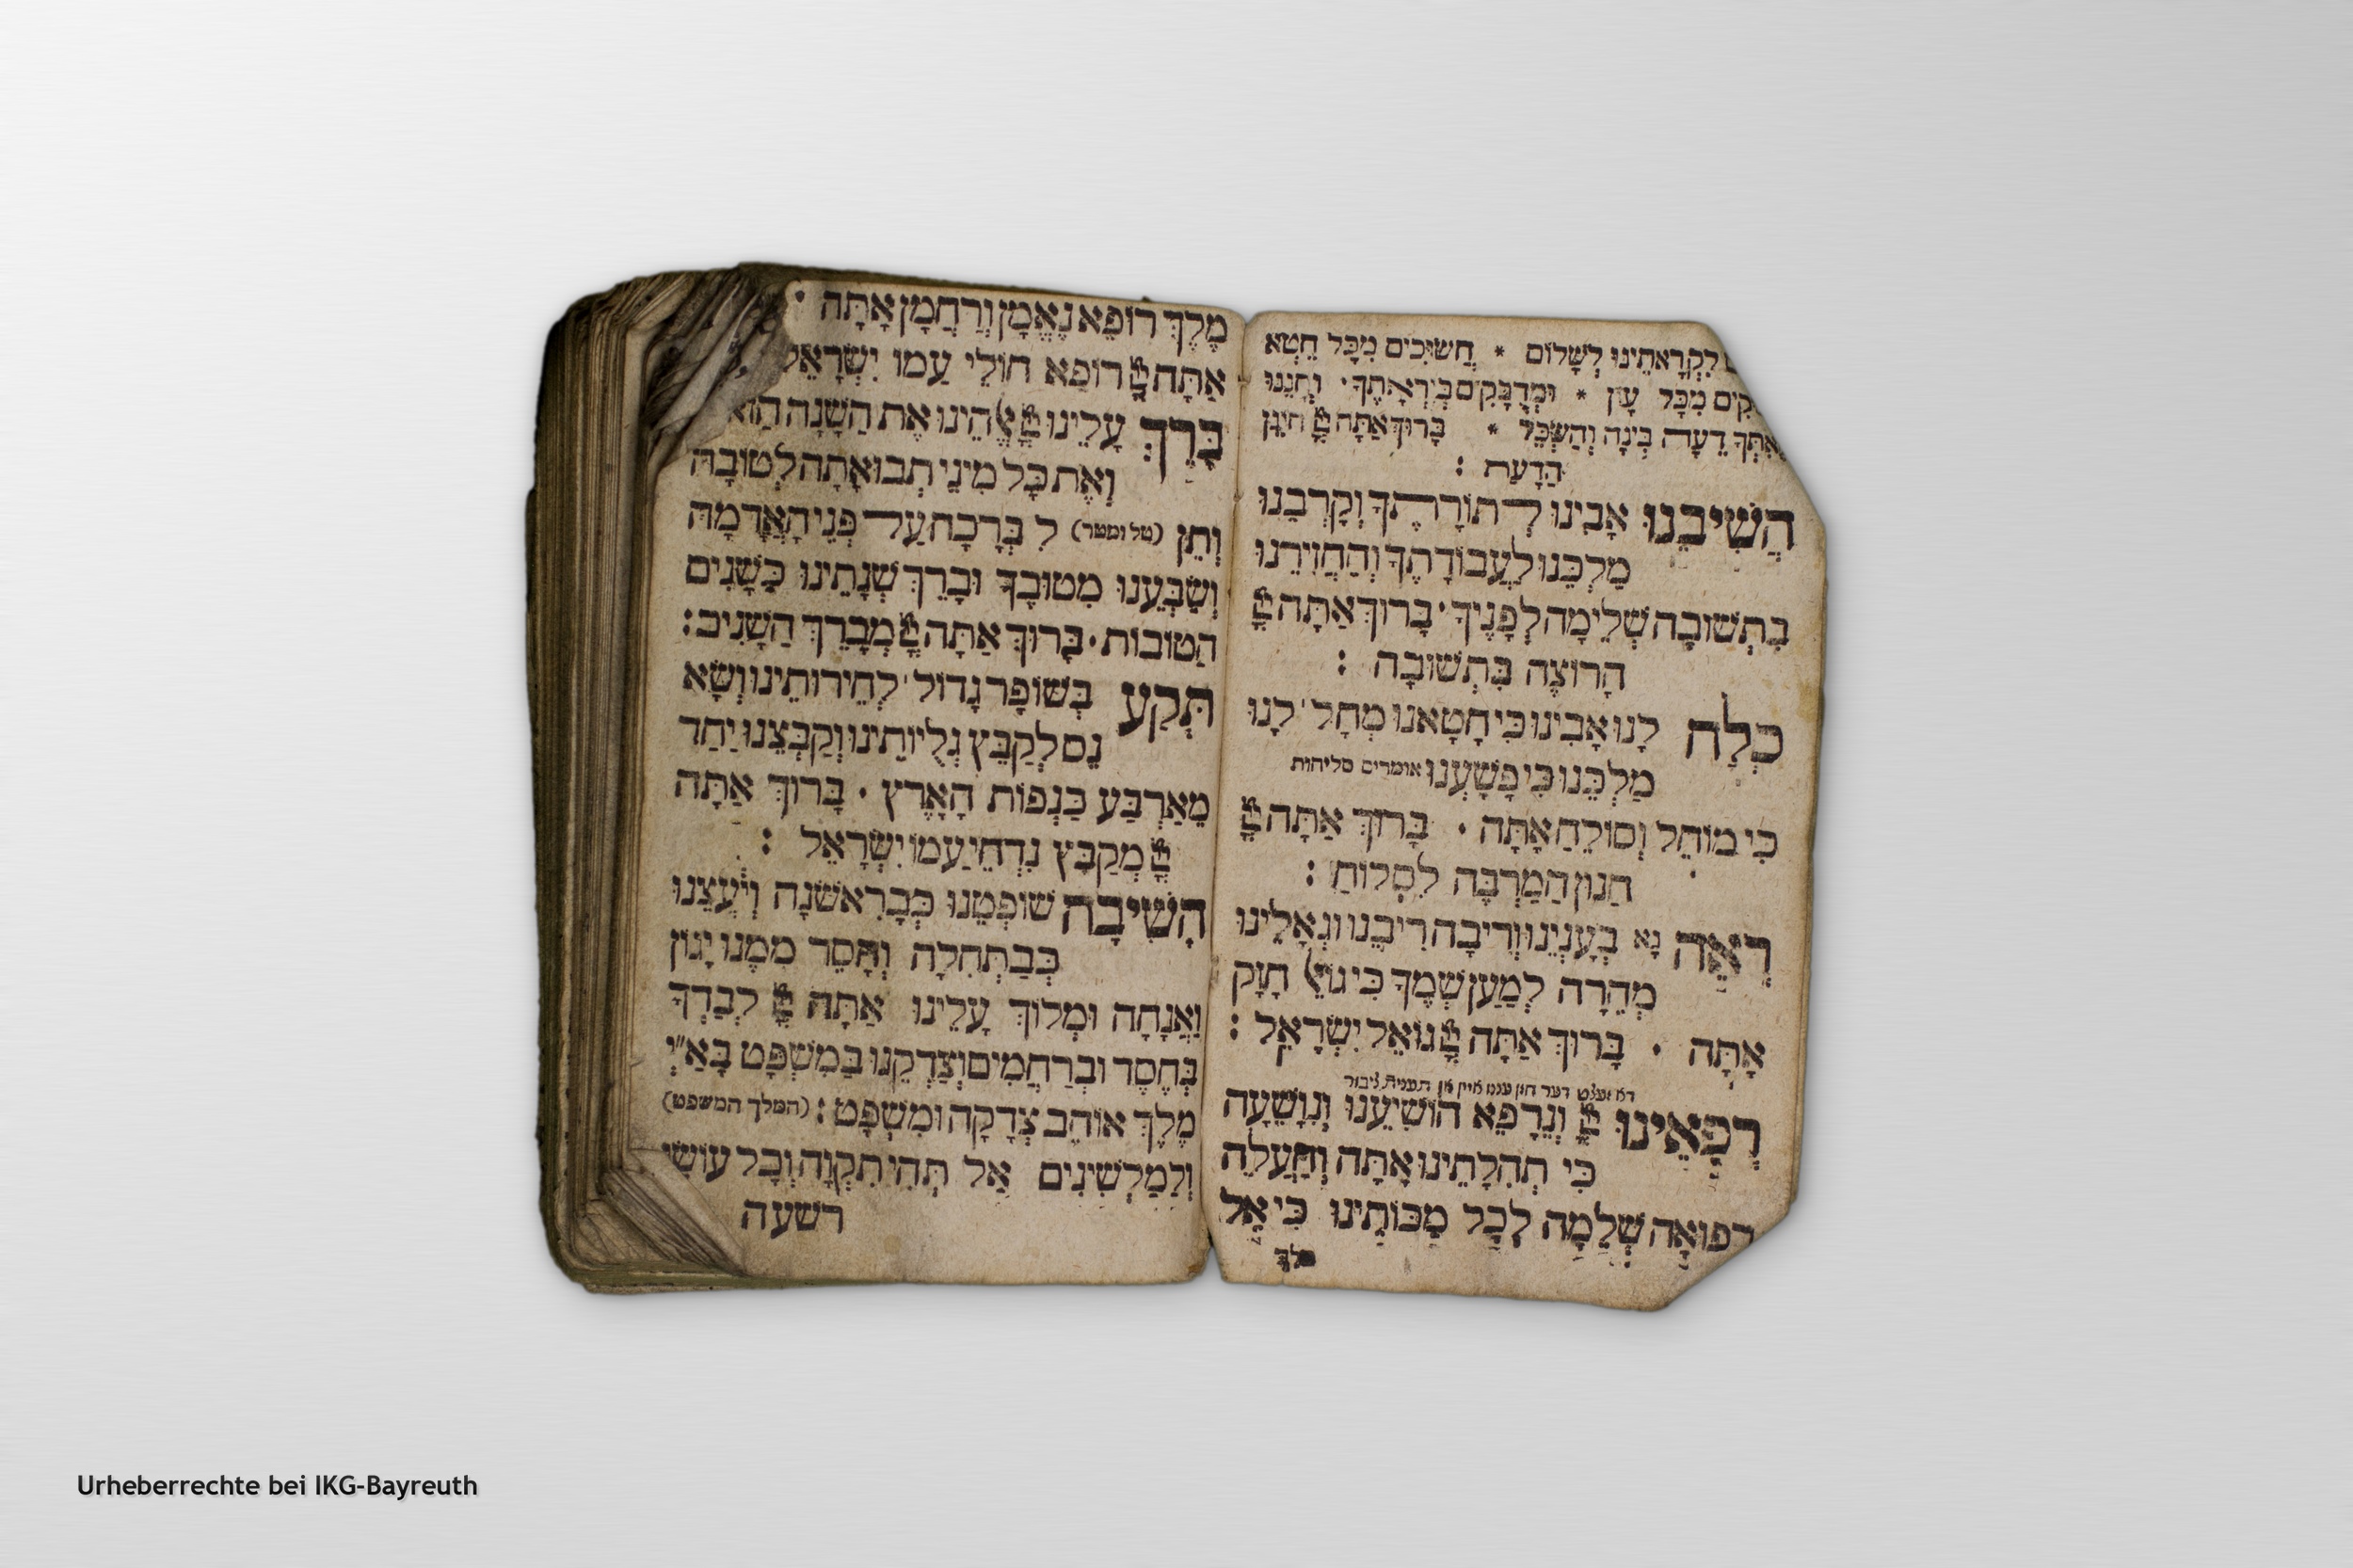 לִקְרָאתֵינוּ לְשָׁלוֹם * חֲשׂוּכִים מִכָּל חֵטְא
מִכָּל עָוֹן * וּמְדֻבָּקִים בְּיִרְאָתֶךָ · וְחָנֵנוּ
דֵעָה בִּינָה וְהַשְׂכֵּל * בָּרוּךְ אַתָּה יְיָ חוֹנֵן
הַדָעַת :
הֲשִׁיבֵנוּ אָבִינוּ לְתוֹרָתֶךָ וְקָרְבֵנוּ
מַלְכֵּנוּ לַעֲבוֹדָתֶךָ וְהַחֲזִירֵנוּ
בִּתְשׁוּבָה שְׁלֵימָה לְפָנֶיךָ · בָּרוּךְ אַתָּה יְיָ
הָרוֹצֶה בִּתְשׁוּבָה :
סְלַח לָנוּ אָבִינוּ כִּי חָטָאנוּ מְחַל לָנוּ
מַלְכֵּנוּ כִּי פָשָׁעְנוּ אומרים סליחות
כִּי מוֹחֵל וְסוֹלֵחַ אָתָּה · בָּרוּךְ אַתָּה יְיָ
חַנּוּן הַמַרְבֶּה לִסְלוֹחַ :
רְאֵה נָא בְּעָנְיֵנוּ וְרִיבָה רִיבֵנוּ וּגְאָלֵינוּ
מְהֵרָה לְמַעַן שְׁמֶךָ כִּי גוֹאֵל חָזָק
אָתָּה · בָּרוּךְ אַתָּה יְיָ גּוֹאֵל יִשְׂרָאֵל :
דא זאגט דער חזן עננו איין אן תענית ציבור
רְפָאֵינוּ יְיָ וְנֵרָפֵא הוֹשִׁיעֵנוּ וְנִוָשֵׁעָה
כִּי תְהִלָתֵינוּ אָתָּה וְהַעֲלֵה
רפוּאָה שְׁלֵמָה לְכָל מַכּוֹתֵינוּ כִּי אֵל
מלך
מֶלֶךְ רוֹפֵא נֶאֱמָן וְרַחֲמָן אָתָּה ·
אַתָּה יְיָ רוֹפֵא חוֹלֵי עַמוֹ יִשְׂרָאֵל
בָּרֵךְ עָלֵינוּ יְיָ אֱלֹהֵינוּ אֶת הַשָׁנָה הַזֹאת
וְאֶת כָּל מִינֵי תְבוּאָתָהּ לְטוֹבָה
וְתֵן (טל ומטר) לִ בְּרָכָה עַל פְּנֵי הָאֲדָמָה
וְשַׂבְּעֵנוּ מִטוּבָךָ וּבָרֵךְ שְׁנָתֵינוּ כַּשָׁנִים
הַטוֹבוֹת · בָּרוּךְ אַתָּה יְיָ מְבָרֵךְ הַשָׁנִים :
תְּקַע בְּשׁוֹפָר גָדוֹל לְחֵירוּתֵינוּ וְשָׂא
נֵס לְקַבֵּץ גָלֻיוֹתֵינוּ וְקַבְּצֵנוּ יַחַד
מֵאַרְבַּע כַּנְפוֹת הָאָרֶץ · בָּרוּךְ אַתָּה
יְיָ מְקַבֵּץ נִדְחֵי עַמוֹ יִשְׂרָאֵל :
הָשִׁיבָה שׁוֹפְטֵנוּ כְּבָרִאשׁנָה וְיֹעֲצֵנוּ
כְּבַתְּחִלָה וְהָסֵר מִמֶנוּ יָגוֹן
וַאֲנָחָה וּמְלוֹךְ עָלֵינוּ אַתָּה יְיָ לְבַדְךָ
בְּחֶסֶד וּבְרַחֲמִים וְצַדְקֵנוּ בַּמִשְׁפָּט בָּאַ"יְ
מֶלֶךְ אוֹהֵב צְדָקָה וּמִשְׁפָּט : (המלך המשפט)
וְלַמַלְשִׁינִים אַל תְּהִי תִקְוָה וְכָל עוֹשֵׂי
רשעה
Urheberrechte bei IKG-Bayreuth